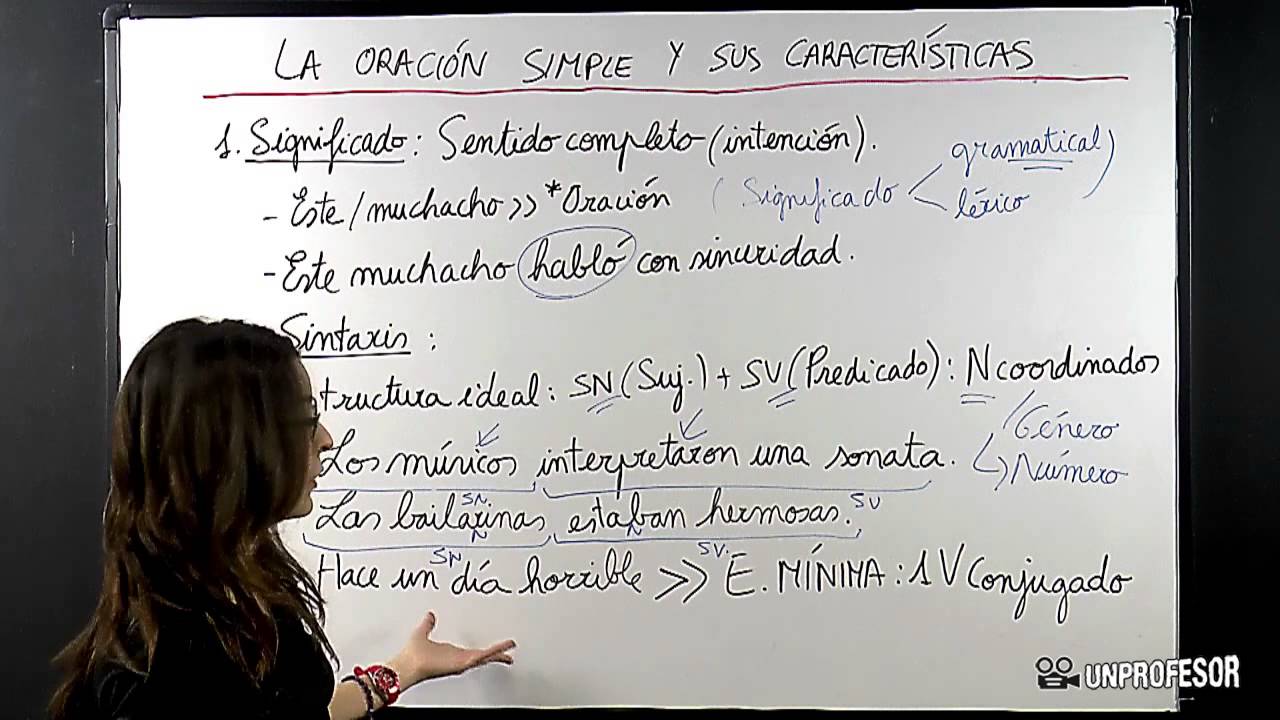 LA ORACIÓN SIMPLE Y SUS CARACTERÍSTICAS
1. Significado: Sentido completo (intención).
- Este/muchacho >> *Oración (Significado < gramatical
léxico)
- Este muchacho habló con sinceridad.
Sintaxis:
tructura ideal: SN (Suj.) + SV (Predicado): N coordinados
Género
Los músicos interpretaron una sonata. Número
SN SV
Las bailarinas estaban hermosas.
N N
SN SV.
Hace un día horrible >> E. MÍNIMA: 1 V Conjugado
UNPROFESOR